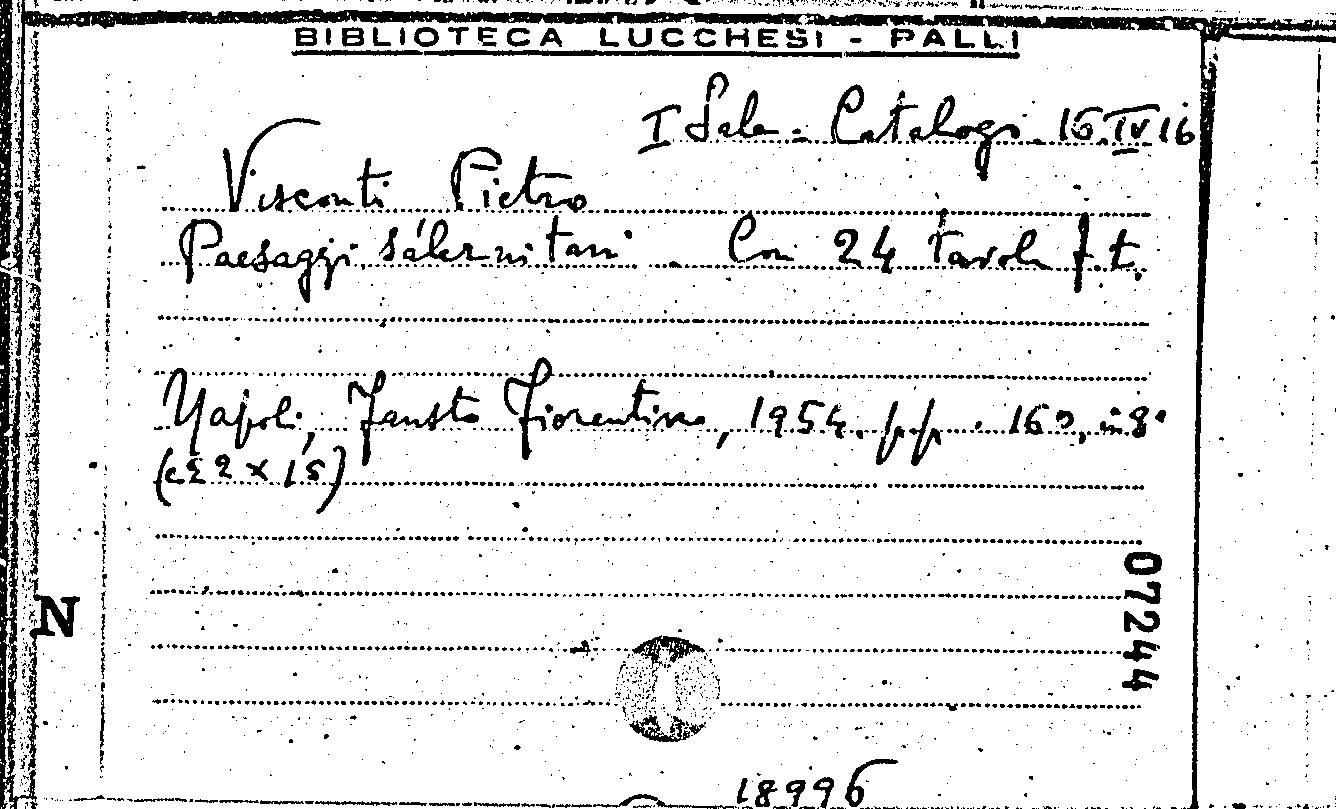 BIBLIOTECA LUCCHESI - PALLI
I Sala - Cataloghi 16.IV.16
Visconti Pietro
Paesaggi salernitani. Con 24 tavole f.t.
Napoli, Fausto Fiorentino, 1954. pp. 160, in 8°
(c 22 x 15)
N
07244
18996